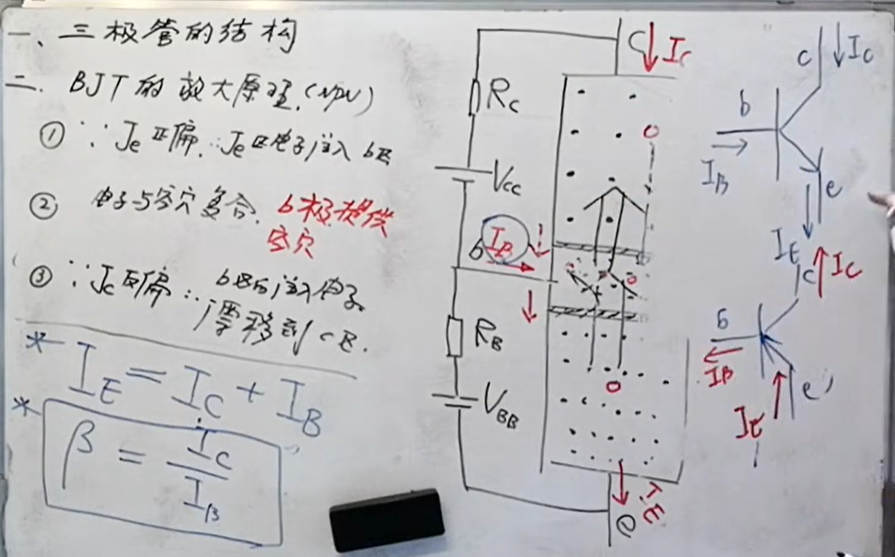 一、三极管的结构
二、BJT的放大原理.(NPN)
① ∵ Je正偏 ∴ Je区电子注入b区
② 电子与空穴复合. b极提供
空穴
③ ∵ Jc反偏 ∴ b区的注入电子
漂移到c区.
* I_E = I_C + I_B
* β = I_C / I_B
C I_C
R_C
V_CC
b I_B
R_B
V_BB
e I_E
c I_C
b
I_B
e
I_E
c I_C
b
I_B
e
I_E